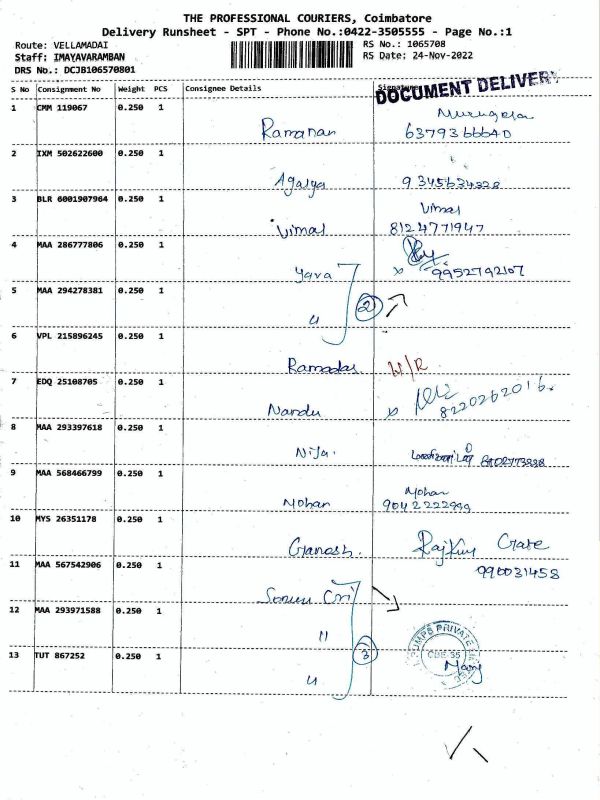 THE PROFESSIONAL COURIERS, Coimbatore
Delivery Runsheet - SPT - Phone No.:0422-3505555 - Page No.:1
Route: VELLAMADAI RS No.: 1065708
Staff: IMAYAVARAMBAN RS Date: 24-Nov-2022
DRS No.: DCJB106570801
DOCUMENT DELIVERY
S No Consignment No Weight PCS Consignee Details Signature
1 CMM 119067 0.250 1
Murugesa
Ramanan
2 IXM 502622600 0.250 1
Agalya 9345634328
3 BLR 6001907964 0.250 1
Vimal
Vimal 8124771947
4 MAA 286777806 0.250 1
Yava 9952792107
5 MAA 294278381 0.250 1
" 2
6 VPL 215896245 0.250 1
Ramadas W/R
7 EDQ 25108705 0.250 1
Nandu 8220262016
8 MAA 293397618 0.250 1
Nija.
9 MAA 568466799 0.250 1
Mohan
Mohan 9042222999
10 MYS 26351178 0.250 1
Ganesh. Rajkumar Gate
11 MAA 567542906 0.250 1
990031458
12 MAA 293971588 0.250 1
"
13 TUT 867252 0.250 1
3
PUMPS PRIVATE
CBE-35
Mary
"